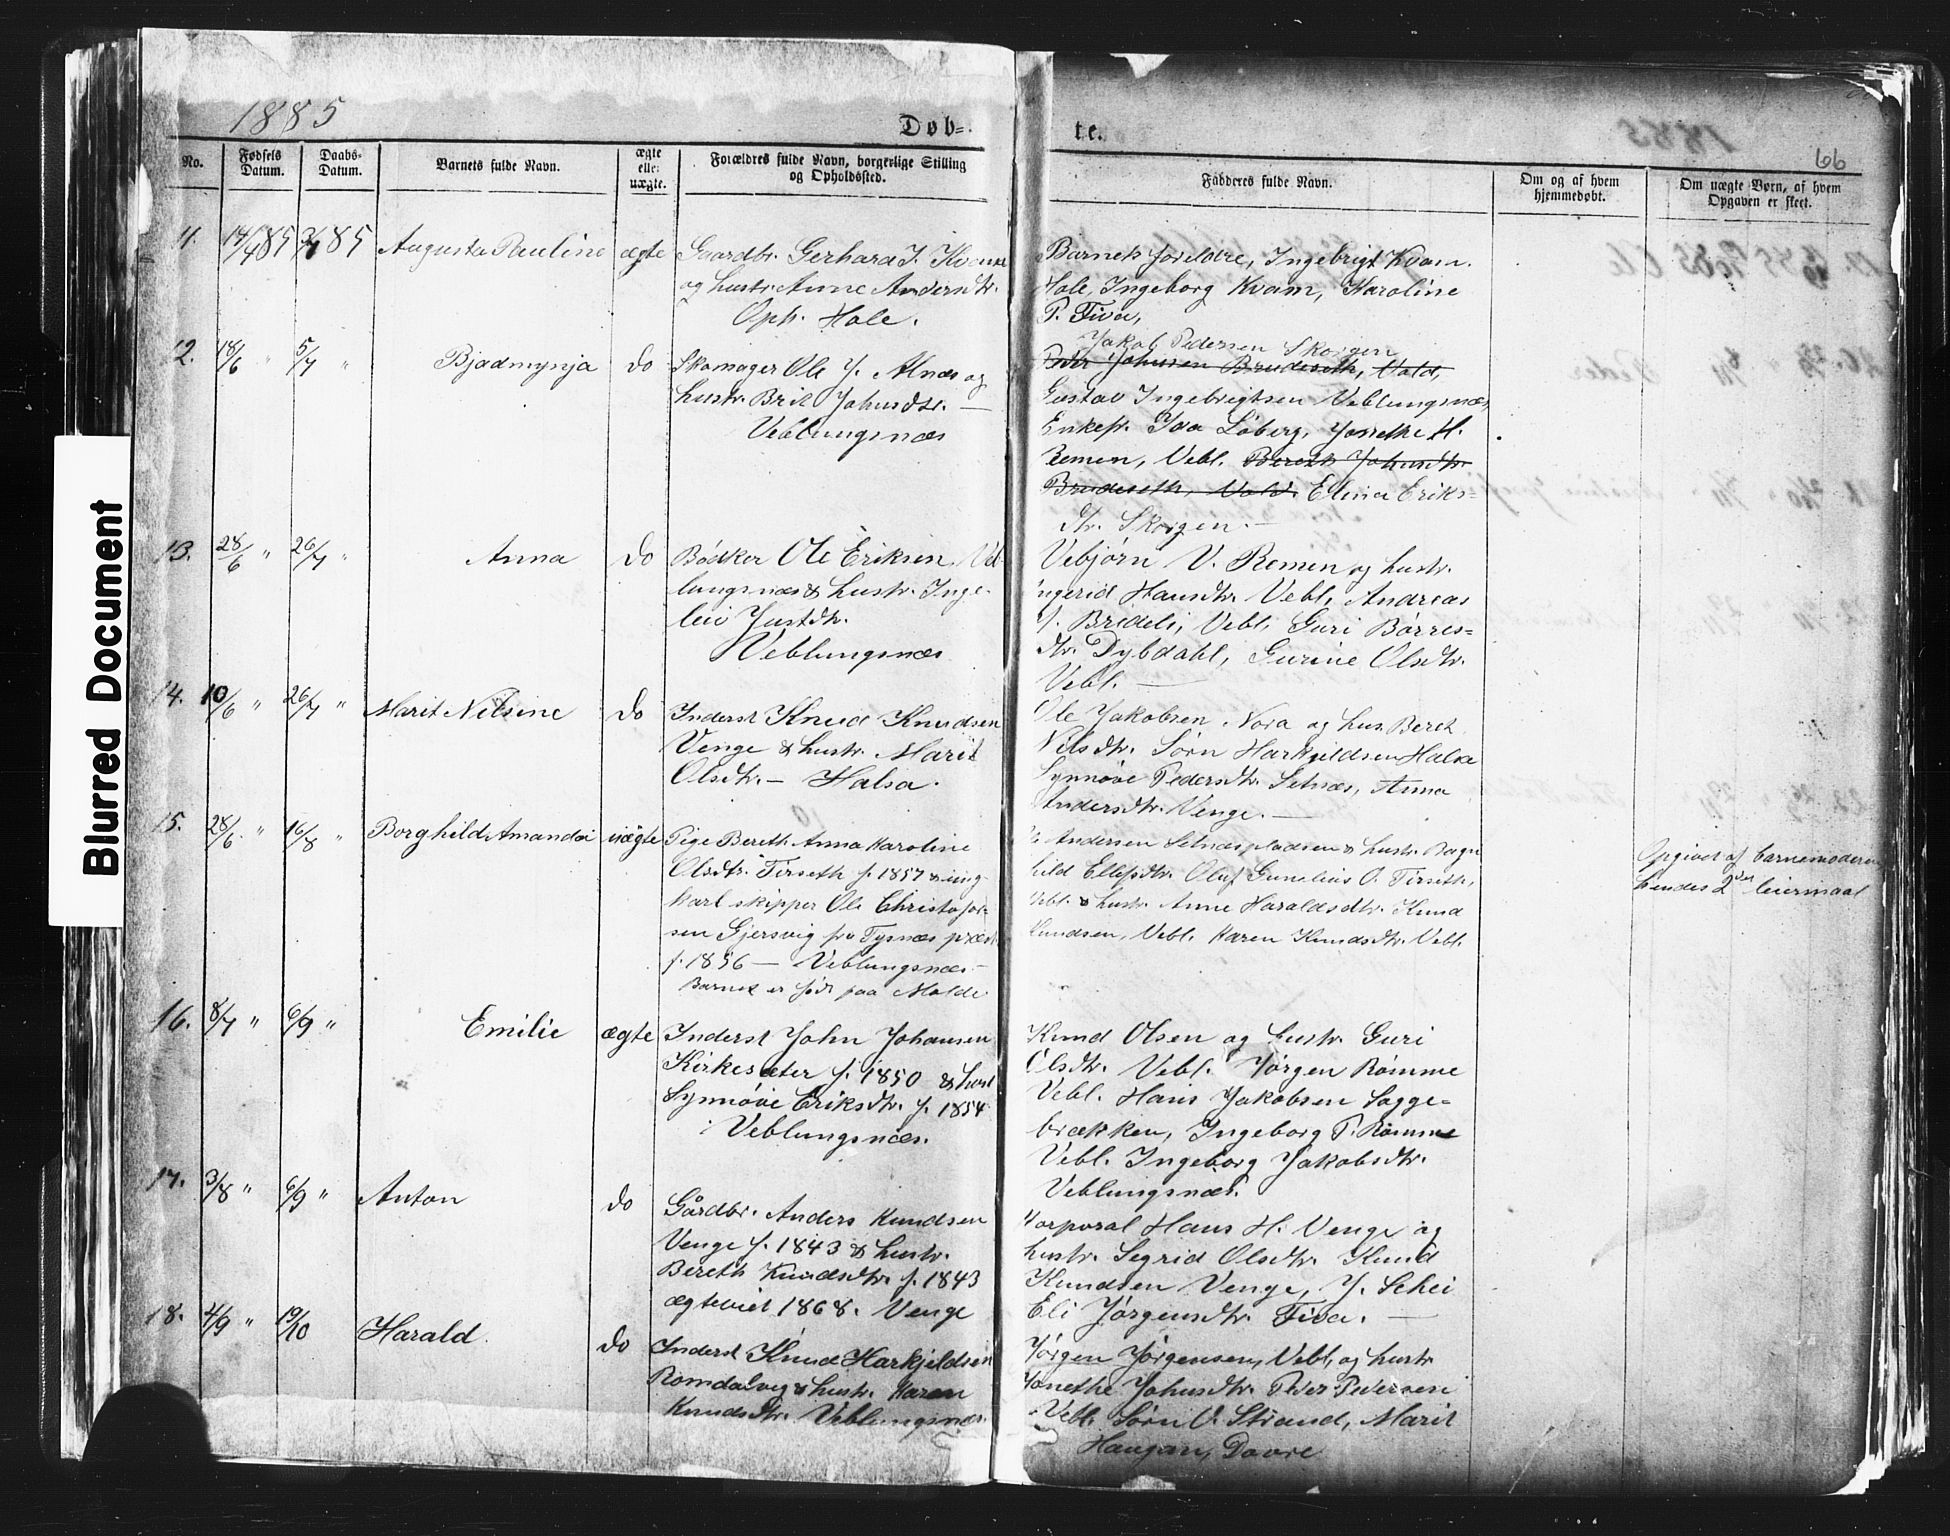 1885
Døb=
te.
1885
66
No.
Fødsels Datum.
Daabs-Datum.
Barnets fulde Navn.
ægte eller uægte.
Forældres fulde Navn, borgerlige Stilling og Opholdssted.
Fadderes fulde Navn.
Om og af hvem hjemmedøbt.
Om uægte Børn, af hvem Opgaven er skeet.
11.
Augusta Pauline
ægte
Gaardbr. Gerhard J. Kvam
og hustr. Anne Andersdtr.
Oph. Hole.
Barnets foreldre, Ingebrigt Kvam.
Hole, Ingeborg Kvam, Karoline
P. Fiva,
12. 18/6 " 5/7 "
Bjadmynja
do
Skomager Ole J. Alnæs og
hustr. Brit Johnsdtr. —
Veblungsnæs
Jakob Pedersen Skorgen
Peder Johnsen Brudeseth, Vold,
Gustav Ingebrigtsen Veblungsnæs,
Enkefr. Ida Löberg, Jonethe H.
Remen, Vebl. Bereth Johnsdtr.
Brudeseth, Vold. Elina Eriks=
dtr. Skorgen. —
13. 28/6 " 26/7 "
Anna
do
Bødker Ole Eriksen, Veb
lungsnæs & hustr. Inge-
leiv Justdtr.
Veblungsnæs
Vebjørn V. Remen og hustr.
Ingerid Hansdtr. Vebl, Andreas
J. Brideli, Vebl, Guri Børres=
dtr. Dybdahl, Gurine Olsdtr.
Vebl. —
14. 10/6 " 26/7 "
Marit Nilsine
do
Inderst Knud Knudsen
Venge & hustr. Marit
Olsdtr. — Halsa.
Ole Jakobsen Nora og hus. Beret
Nilsdtr. Sørn Harkjeldsen Halsa
Synnøve Pedersdtr. Setnæs, Anna
Andersdtr. Venge. —
15. 28/6 " 16/8 "
Borghild Amanda
uægte
Pige Bereth Anna Karoline
Olsdtr. Tirseth f. 1857 & ung-
karl skipper Ole Christofer-
sen Gjersvig fra Tysnæs præst.
f. 1856 — Veblungsnæs —
Barnet er født paa Molde
Andersen Setnæspladsen & hustr. Ragn
hild Ellefsdtr. Oluf Gunelius O. Tirseth,
Vebl. & hustr. Anne Haraldsdtr. Knud
Knudsen, Vebl. Karen Knudsdtr. Vebl.
Opgivet af barnemoderen
hendes 2det leiermaal
16. 8/7 " 6/9 "
Emilie
ægte
Inderst John Johansen
Kirkesæter f. 1850 & hust
Synnøve Eriksdtr. f. 1854
Veblungsnæs.
Knud Olsen og hustr. Guri
Olsdtr. Vebl. Jørgen Rømme
Vebl. Hans Jakobsen Sogge=
brækken, Ingeborg P. Rømme
Vebl. Ingeborg Jakobsdtr.
Veblungsnæs.
17. 3/8 " 6/9 "
Anton
do
Gårdbr. Anders Knudsen
Venge f. 1843 & hustr.
Bereth Knudsdtr. f. 1843
ægteviet 1868. Venge
Korporal Hans H. Venge og
hustr. Segrid Olsdtr. Knud
Knudsen Venge, J. Schei
Eli Jørgensdtr. Fiva. —
18. 4/9 " 19/10
Harald.
do
Inderst Knud Harkjeldsen
Romdalsvig & hustr. Karen
Knudsdtr. Veblungsnæs.
Jørgen Jørgensen, Vebl, og hustr
Jonethe Johnsdtr. Peder Pedersen
Vebl. Sørn O. Strand, Marit
Haugan, Dovre
Blurred Document